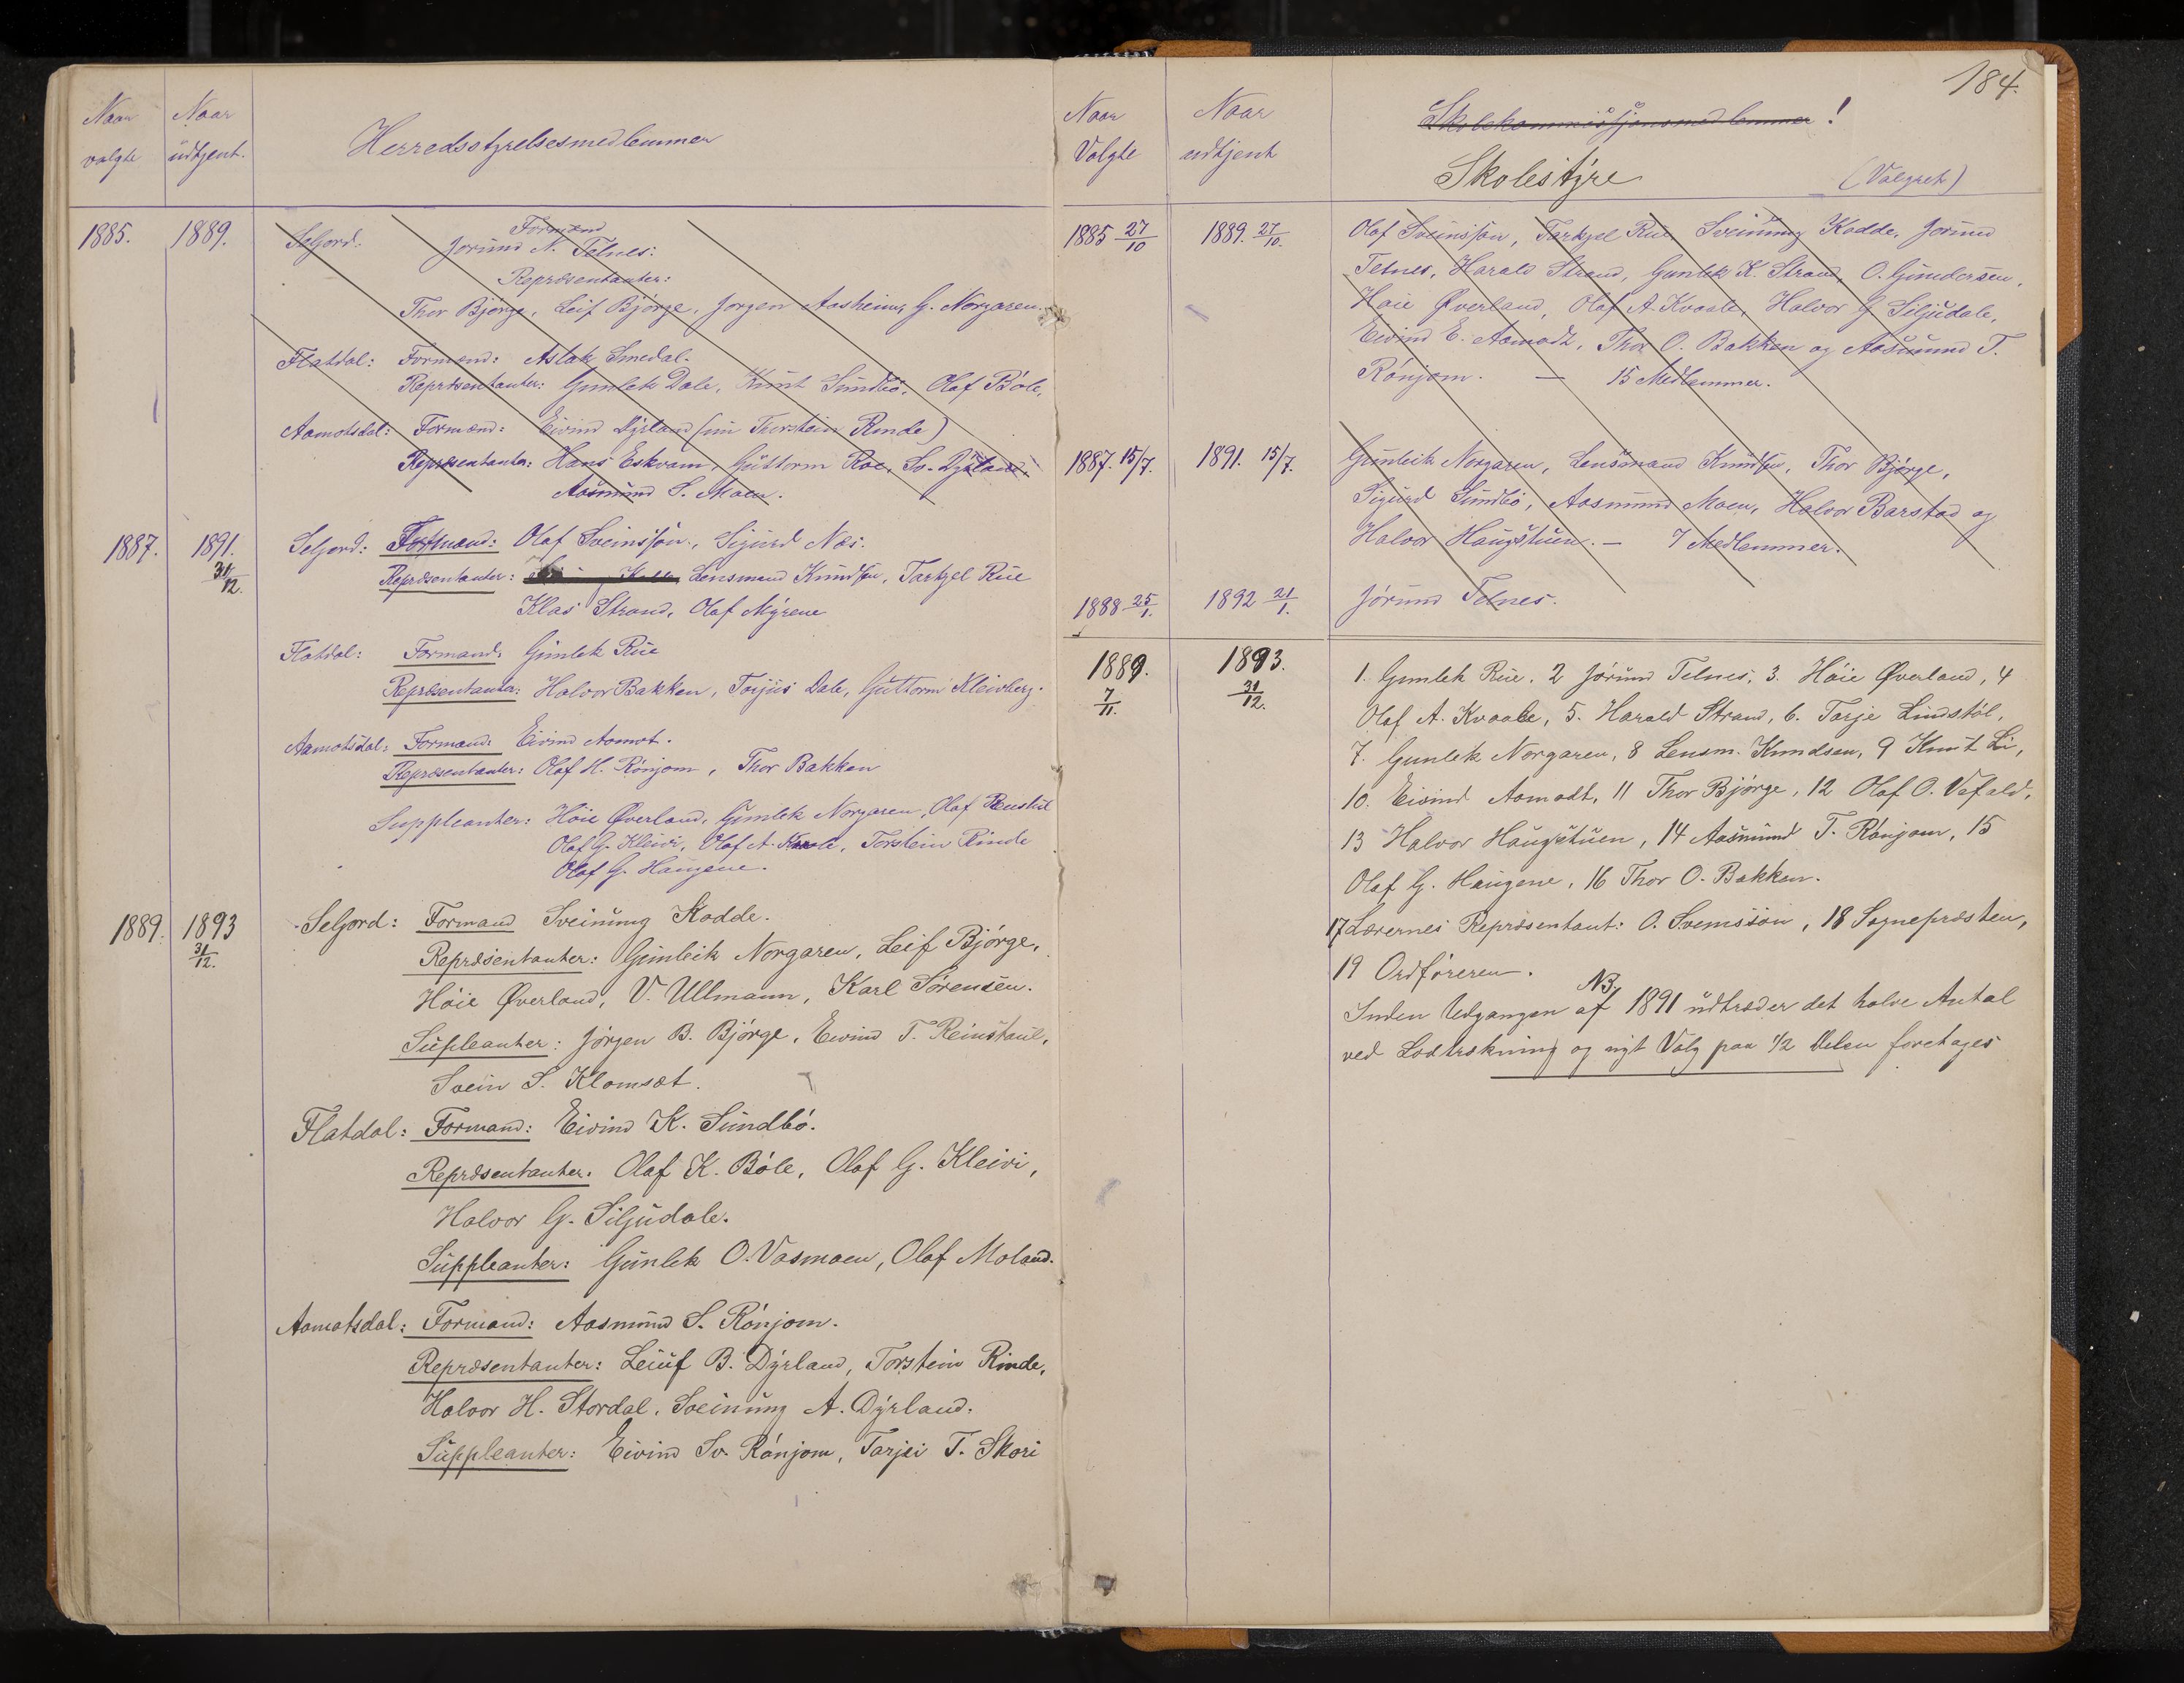 Naar valgte
Naar udtjent.
Herredsstyrelsesmedlemmer
1885. 1889.
Seljord. Formænd
Jorund N. Telnes:
Repræsentanter:
Thor Bjørge, Leif Bjørge, Jørgen Aasheim, G. Norgaren.
Flatdal: Formænd: Aslak Smedal.
Repræsentanter: Gunlek Dale, Knut Sundbø, Olaf Bøle,
Aamotsdal: Formænd: Eivind Dyrland (nu Thorstein Rinde)
Repræsentanter: Hans Eskvam, Guttorm Roe, Sv. Dyrland,
Aasmund S. Moen.
1887. 1891. 31/12.
Seljord: Formænd: Olaf Sveinsson, Sigurd Næs.
Repræsentanter: Lensmand Knudsen, Tarkjel Rue
Klas Strand, Olaf Myrene
Flatdal: Formand: Gunlek Rue
Repræsentanter: Halvor Bakken, Torjus Dale, Guttorm Kleivberg.
Aamotsdal: Formand: Eivind Aamot.
Repræsentanter: Olaf H. Rönjom, Thor Bakken
Suppleanter: Höie Øverland, Gunlek Norgaren, Olaf
Olaf G. Kleivi, Olaf A. Kvaale, Torstein Rinde
Olaf G. Haugene.
1889. 1893 31/12.
Seljord: Formand Sveinung Kodde.
Repræsentanter: Gunleik Norgaren, Leif Bjórge,
Hóie Øverland, V. Ullmann, Karl Sórensen.
Supleanter: Jórgen B. Bjórge, Eivind T. Reinstaul,
Svein S. Klomset.
Flatdal: Formand: Eivind K. Sundbó.
Repræsentanter: Olaf K. Bóle, Olaf G. Kleivi,
Halvor G. Siljudale.
Suppleanter: Gunlek O. Vasmoen, Olaf Moland.
Aamotsdal: Formand: Aasmund S. Rónjom.
Repræsentanter: Leiuf B. Dyrland, Torstein Rinde,
Halvor H. Stordal, Sveinung A. Dyrland.
Suppleanter: Eivind Sv. Rónjom, Tarjei T. Skori
184.
Naar Valgte
Naar udtjent
Skolekommissjonsmedlemmer!
Skolestyre (Valgret)
1885 27/10 1889. 27/10.
Olaf Sveinsson, Tarkjel Rue, Sveinung Kodde, Jorund
Telnes, Harald Strand, Gunlek K. Strand, O. Gundersen,
Høie Øverland, Olaf A. Kvaale, Halvor G Siljudale,
Eivind E. Aamodt, Thor O. Bakken og Aasmund T.
Rónjom. — 15 Medlemmer.
1887. 15/7. 1891. 15/7.
Gunleik Norgaren, Lensmand Knudsen, Thor Bjørge,
Sigurd Sundbö, Aasmund Moen, Halvor Barstad og
Halvor Haugstuen. — 7 Medlemmer.
1888 25/1. 1892 21/1.
Jórund Telnes.
1889. 7/11. 1893. 31/12.
1. Gunlek Rue. 2 Jórund Telnes, 3. Hóie Øverland, 4
Olaf A. Kvaale, 5. Harald Strand, 6. Tarje Lindstól,
7. Gunlek Norgaren, 8 Lensm. Knudsen, 9 Knut Li,
10. Eivind Aamodt, 11 Thor Bjórge, 12 Olaf O. Vefald,
13 Halvor Haugstuen, 14 Aasmund T. Rónjom, 15
Olaf G. Haugene, 16 Thor O. Bakken.
17 Lærernes Repræsentant: O. Sveinssön, 18 Sognepræsten,
19 Ordføreren.
NB.
Inden Udgangen af 1891 udtræder det halve Antal
ved Lodtrækning og nyt Valg paa 1/2 Delen foretages